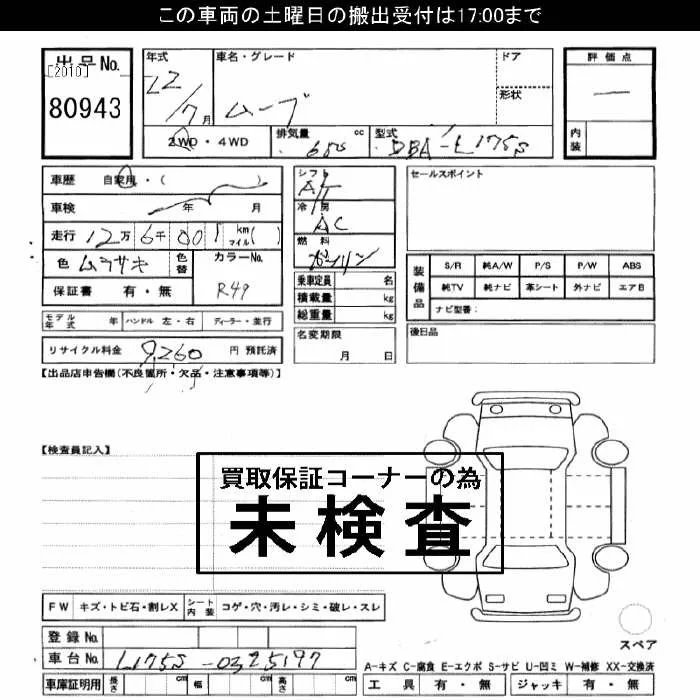 この車両の土曜日の搬出受付は17:00まで
出品No.
[2010]
80943
年式
22/7月
車名・グレード
ムーブ
ドア
形状
評価点
内装
2WD・4WD
排気量 cc
型式 DBA-L175S
車歴 自家用・( )
車検 年 月
走行 12万6千001 km マイル( )
色 ムラサキ
色替
カラーNo. R49
保証書 有・無
シフト AT
冷房 AC
燃料 ガソリン
乗車定員 名
積載量 kg
総重量 kg
セールスポイント
装備品
S/R 純A/W P/S P/W ABS
純TV 純ナビ 革シート 外ナビ エアB
ナビ型番:
モデル年式 年 ハンドル 左・右 ディーラー・並行
名変期限
月 日
後日品
リサイクル料金 9,260 円 預託済
【出品店申告欄(不良箇所・欠品・注意事項等)】
【検査員記入】
買取保証コーナーの為
未検査
FW キズ・トビ石・割レX シート内装 コゲ・穴・汚レ・シミ・破レ・スレ
登録No.
車台No. L175S-0325197
車庫証明用 長さ cm 幅 cm 高さ cm
スペア
A-キズ C-腐食 E-エクボ S-サビ U-凹ミ W-補修 XX-交換済
工具 有・無 ジャッキ 有・無